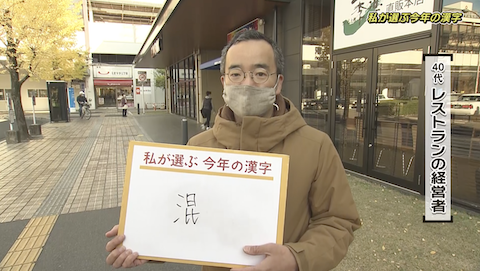 私が選ぶ今年の漢字
40代 レストランの経営者
私が選ぶ 今年の漢字
混